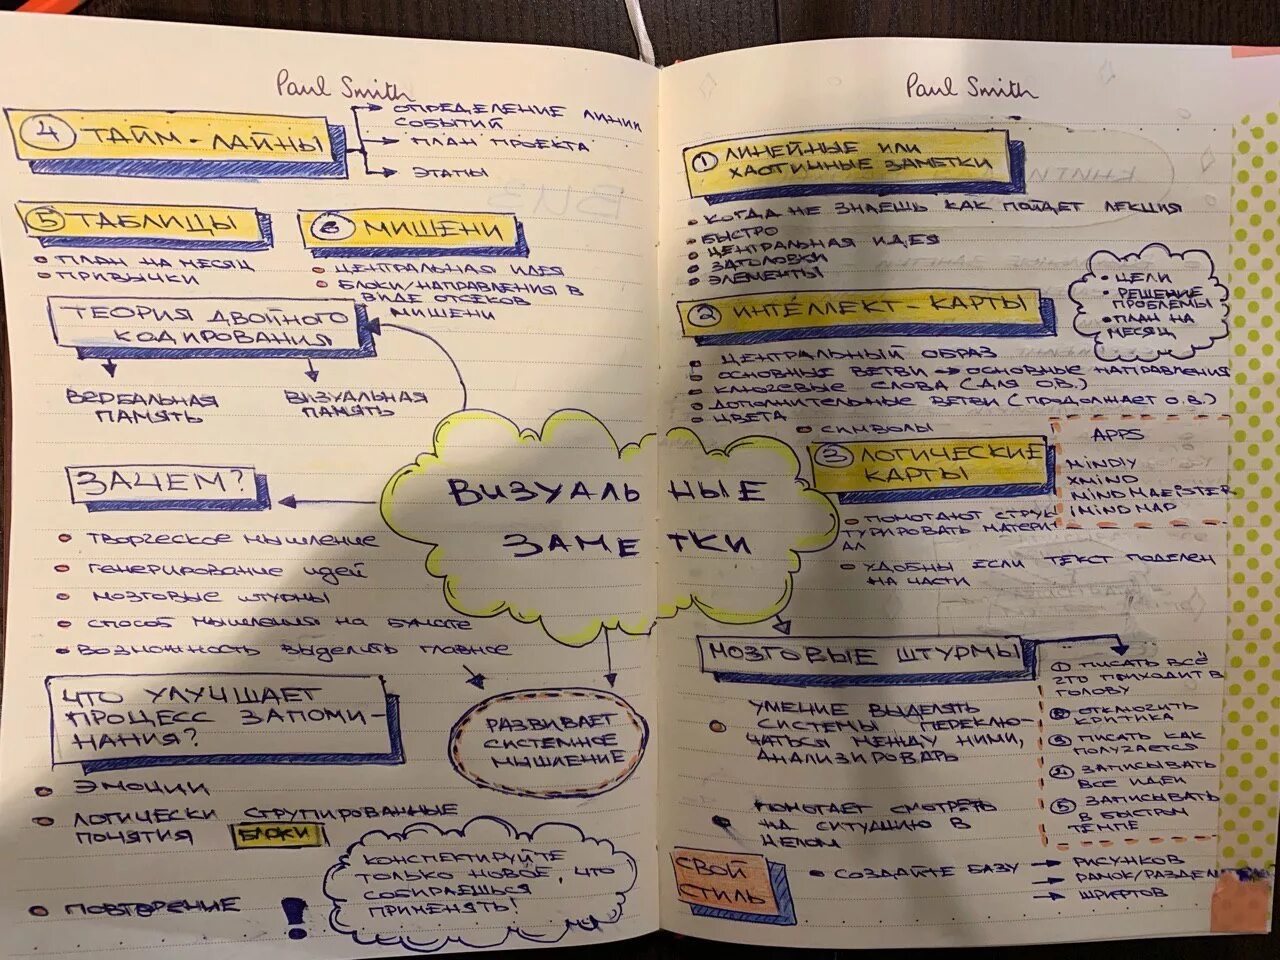 Paul Smith
4 ТАЙМ-ЛАЙНЫ
ОПРЕДЕЛЕНИЕ ЛИНИИ
СОБЫТИЙ
ПЛАН ПРОЕКТА
ЭТАПЫ
5 ТАБЛИЦЫ
ПЛАН НА МЕСЯЦ
ПРИВЫЧКИ
6 МИШЕНИ
ЦЕНТРАЛЬНАЯ ИДЕЯ
БЛОКИ/НАПРАВЛЕНИЯ В
ВИДЕ ОТСЕКОВ
МИШЕНИ
ТЕОРИЯ ДВОЙНОГО
КОДИРОВАНИЯ
ВЕРБАЛЬНАЯ
ПАМЯТЬ
ВИЗУАЛЬНАЯ
ПАМЯТЬ
ВИЗУАЛЬНЫЕ
ЗАМЕТКИ
ЗАЧЕМ?
ТВОРЧЕСКОЕ МЫШЛЕНИЕ
ГЕНЕРИРОВАНИЕ ИДЕЙ
МОЗГОВЫЕ ШТУРМЫ
СПОСОБ МЫШЛЕНИЯ НА БУМАГЕ
ВОЗМОЖНОСТЬ ВЫДЕЛИТЬ ГЛАВНОЕ
РАЗВИВАЕТ
СИСТЕМНОЕ
МЫШЛЕНИЕ
ЧТО УЛУЧШАЕТ
ПРОЦЕСС ЗАПОМИ-
НАНИЯ?
ЭМОЦИИ
ЛОГИЧЕСКИ СГРУПИРОВАННЫЕ
ПОНЯТИЯ БЛОКИ
ПОВТОРЕНИЕ
!
КОНСПЕКТИРУЙТЕ
ТОЛЬКО НОВОЕ, ЧТО
СОБИРАЕШЬСЯ
ПРИМЕНЯТЬ!
Paul Smith
1 ЛИНЕЙНЫЕ ИЛИ
ХАОТИЧНЫЕ ЗАМЕТКИ
КОГДА НЕ ЗНАЕШЬ КАК ПОЙДЕТ ЛЕКЦИЯ
БЫСТРО
ЦЕНТРАЛЬНАЯ ИДЕЯ
ЗАГОЛОВКИ
ЭЛЕМЕНТЫ
ЦЕЛИ
РЕШЕНИЕ
ПРОБЛЕМЫ
ПЛАН НА
МЕСЯЦ
2 ИНТЕЛЛЕКТ-КАРТЫ
ЦЕНТРАЛЬНЫЙ ОБРАЗ
ОСНОВНЫЕ ВЕТВИ → ОСНОВНЫЕ НАПРАВЛЕНИЯ
КЛЮЧЕВЫЕ СЛОВА (ДЛЯ О.В.)
ДОПОЛНИТЕЛЬНЫЕ ВЕТВИ (ПРОДОЛЖАЕТ О.В.)
ЦВЕТА
СИМВОЛЫ
3 ЛОГИЧЕСКИЕ
КАРТЫ
ПОМОГАЮТ СТРУК
ТУРИРОВАТЬ МАТЕРИ
АЛ
УДОБНЫ ЕСЛИ ТЕКСТ ПОДЕЛЕН
НА ЧАСТИ
APPS
MINDLY
XMIND
MINDMAEISTER
IMINDMAP
МОЗГОВЫЕ ШТУРМЫ
УМЕНИЕ ВЫДЕЛЯТЬ
СИСТЕМЫ ПЕРЕКЛЮ-
ЧАТЬСЯ МЕЖДУ НИМИ,
АНАЛИЗИРОВАТЬ
ПОМОГАЕТ СМОТРЕТЬ
НА СИТУАЦИЮ В
ЦЕЛОМ
1 ПИСАТЬ ВСЁ
ЧТО ПРИХОДИТ В
ГОЛОВУ
2 ОТКЛЮЧИТЬ
КРИТИКА
3 ПИСАТЬ КАК
ПОЛУЧАЕТСЯ
4 ЗАПИСЫВАТЬ
ВСЕ ИДЕИ
5 ЗАПИСЫВАТЬ
В БЫСТРОМ
ТЕМПЕ
СВОЙ
СТИЛЬ
СОЗДАЙТЕ БАЗУ → РИСУНКОВ
→ РАМОК/РАЗДЕЛ
→ ШРИФТОВ